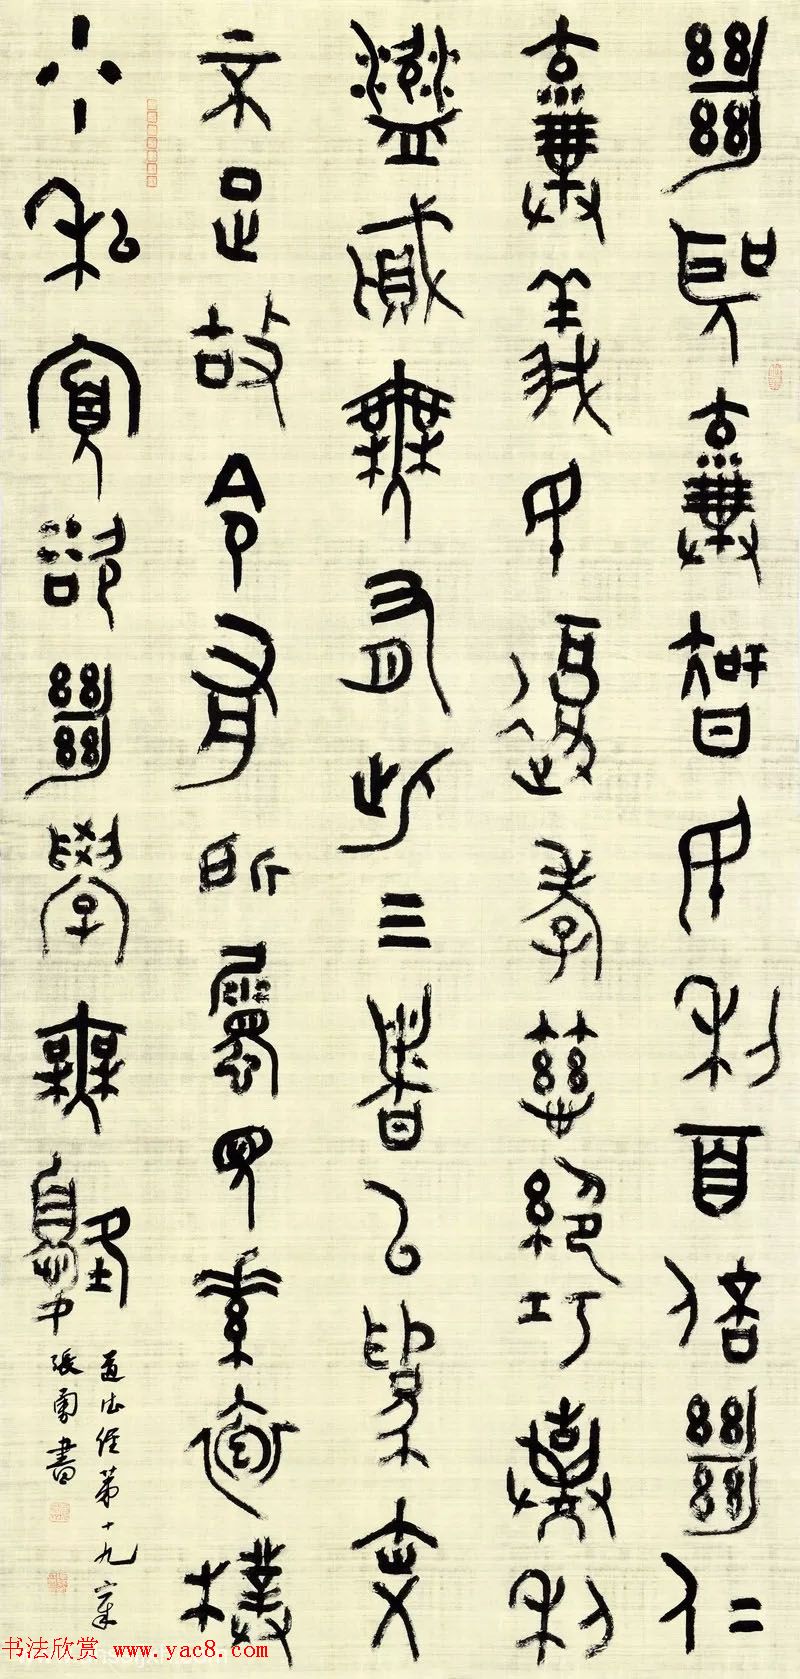 絕聖棄智民利百倍絕仁
棄義民復孝慈絕巧棄利
盜賊無有此三者以為文
不足故令有所屬見素抱樸
少私寡欲絕學無憂
道德經第十九章
張勇書
书法欣赏 www.yac8.com